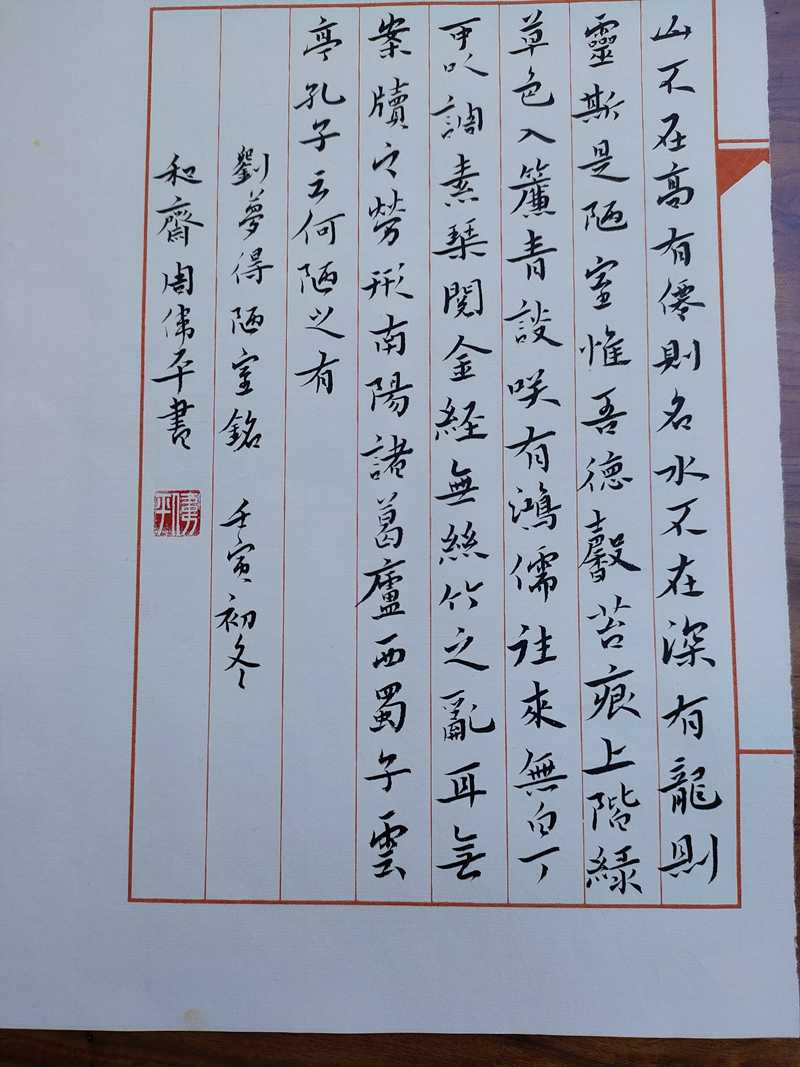 山不在高有僊則名水不在深有龍則
靈斯是陋室惟吾德馨苔痕上階緑
草色入簾青談咲有鴻儒往來無白丁
可以調素琹閱金経無絲竹之亂耳無
案牘之勞形南陽諸葛廬西蜀子雲
亭孔子云何陋之有
劉夢得陋室銘 壬寅初冬
和齋周偉平書
偉平